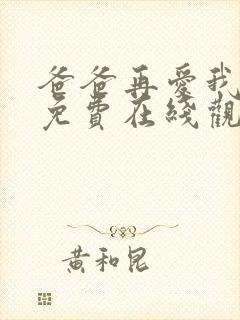 爸爸再愛我
免費在綫觀
黃和昆